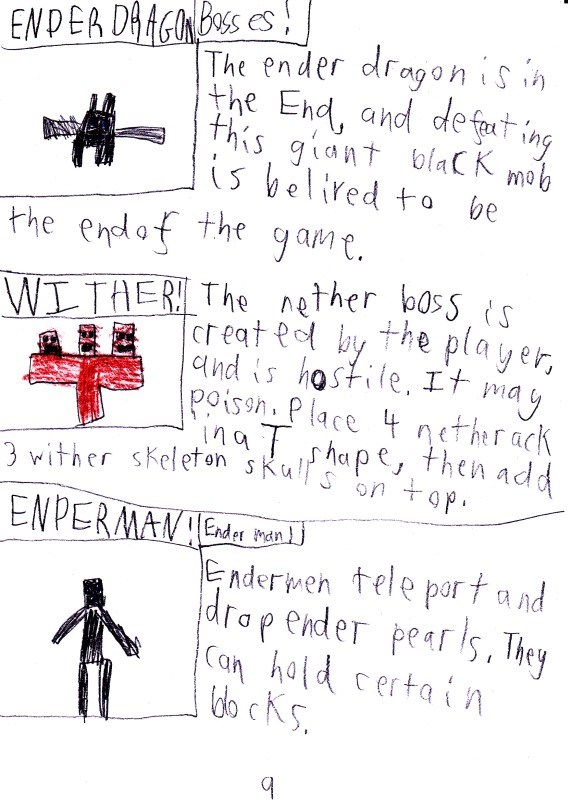 ENDER DRAGON Bosses!
The ender dragon is in
the End, and defeating
this giant black mob
is belired to be
the end of the game.
WITHER! The nether boss is
created by the player,
and is hostile. It may
poison. Place 4 netherack
in a T shape, then add
3 wither skeleton skulls on top.
ENPERMAN! Ender man!
Endermen teleport and
drop ender pearls. They
can hold certain
blocks.
9